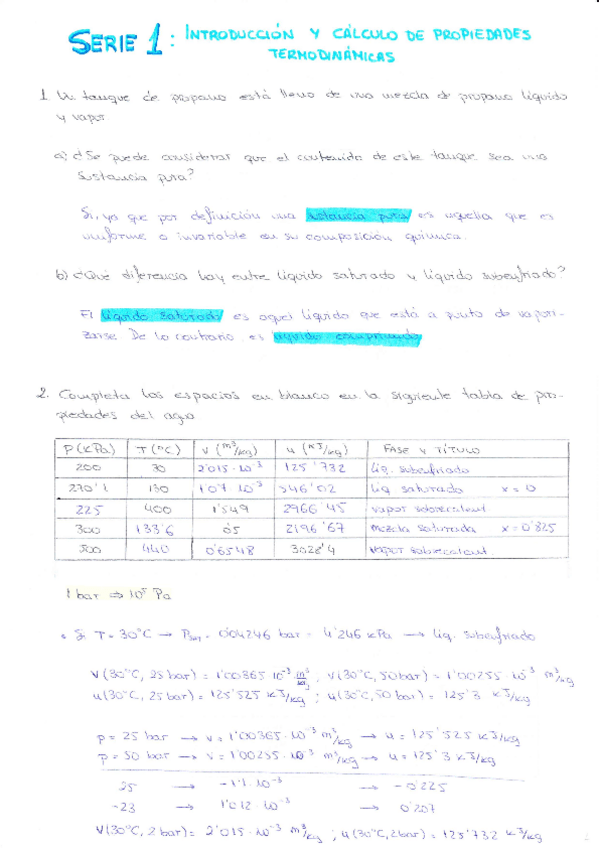 SERIE 1: INTRODUCCIÓN Y CÁLCULO DE PROPIEDADES
TERMODINÁMICAS
1. Un tanque de propano está lleno de una mezcla de propano líquido
y vapor
a) ¿Se puede considerar que el contenido de este tanque sea una
sustancia pura?
Sí, ya que por definición una sustancia pura es aquella que es
uniforme o invariable en su composición química.
b) ¿Qué diferencia hay entre líquido saturado y líquido subenfriado?
El líquido saturado es aquel líquido que está a punto de vapori-
zarse De lo contrario es líquido comprimido
2. Completa los espacios en blanco en la siguiente tabla de pro-
piedades del agua
P(kPa) T(ºC) v(m³/kg) u(kJ/kg) FASE Y TÍTULO
200 30 2'015·10⁻³ 125'732 líq. subenfriado
270'1 130 1'07·10⁻³ 546'02 líq saturado x=0
225 400 1'549 2966'45 vapor sobrecalent
300 133'6 0'5 2196'67 mezcla saturada x=0'825
500 440 0'6548 3028'4 vapor sobrecalent.
1 bar ⇒ 10⁵ Pa
• Si T=30ºC → = 0'04246 bar = 4'246 kPa → líq. subenfriado
v(30ºC, 25 bar) = 1'00365·10⁻³ m³/kg ; v(30ºC, 50 bar) = 1'00255·10⁻³ m³/kg
u(30ºC, 25 bar) = 125'525 kJ/kg ; u(30ºC, 50 bar) = 125'3 kJ/kg
p = 25 bar → v = 1'00365·10⁻³ m³/kg → u = 125'525 kJ/kg
p = 50 bar → v = 1'00255·10⁻³ m³/kg → u = 125'3 kJ/kg
25 → -1'1·10⁻³ → -0'225
-23 → 1'012·10⁻³ → 0'207
v(30ºC, 2 bar) = 2'015·10⁻³ m³/kg ; u(30ºC, 2 bar) = 125'732 kJ/kg